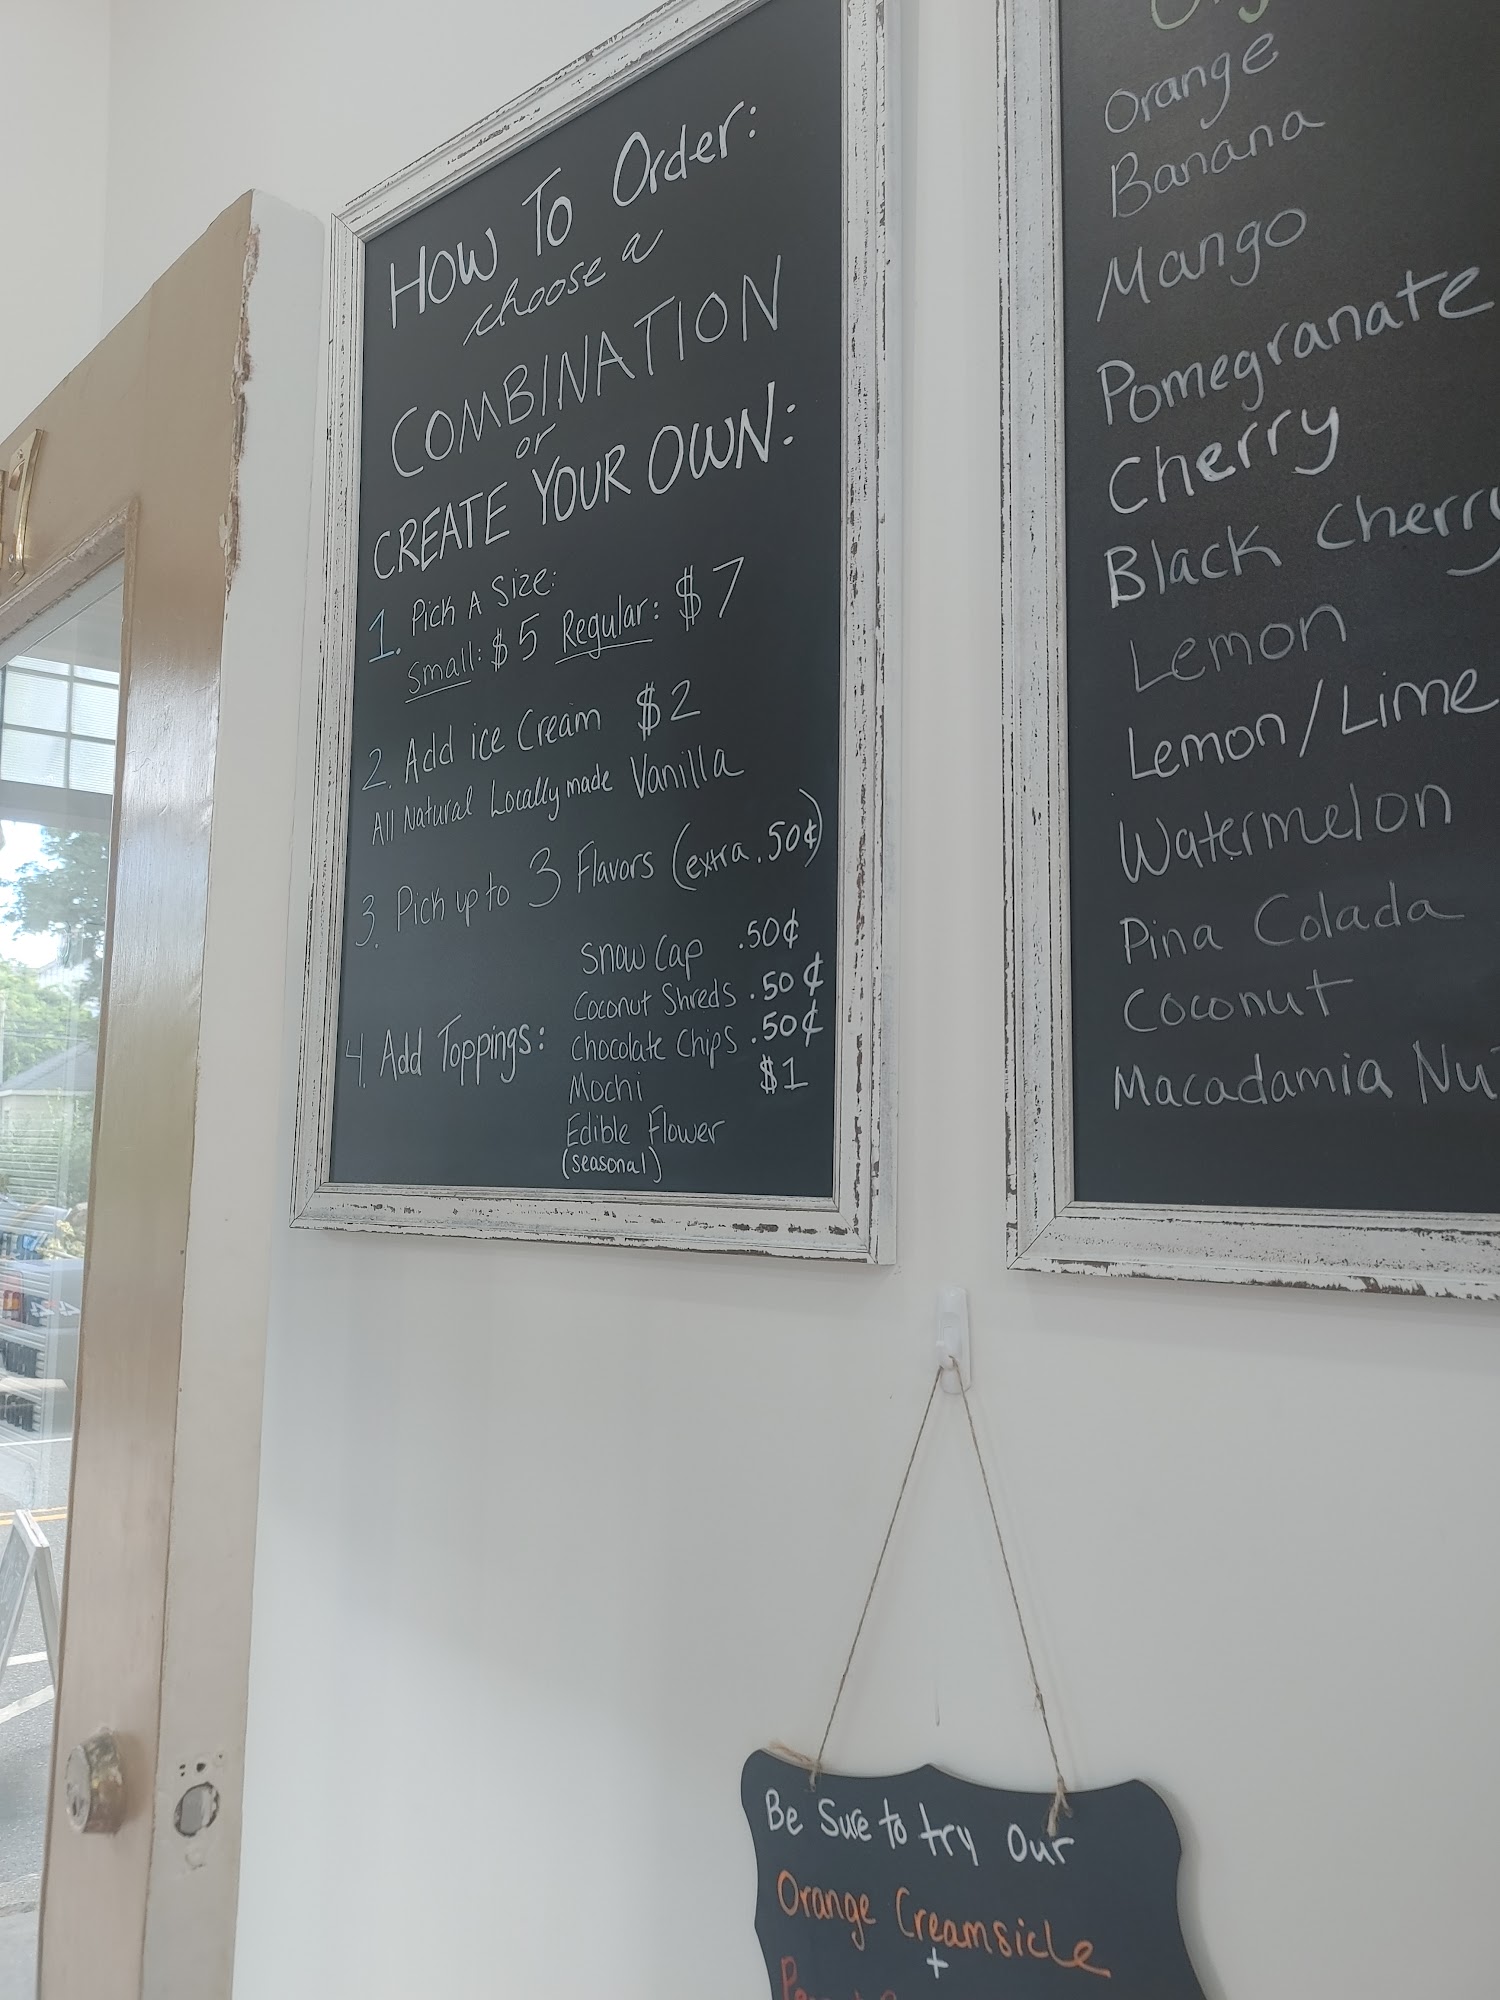 How To Order:
choose a
COMBINATION
or
CREATE YOUR OWN:
1. Pick A Size:
Small: $5 Regular: $7
2. Add ice Cream $2
All Natural Locally made Vanilla
3. Pick up to 3 Flavors (extra .50¢)
Snow Cap .50¢
Coconut Shreds .50¢
4. Add Toppings: Chocolate Chips .50¢
Mochi $1
Edible Flower
(seasonal)
Orange
Banana
Mango
Pomegranate
Cherry
Black Cherry
Lemon
Lemon/Lime
Watermelon
Pina Colada
Coconut
Macadamia Nut
Be Sure to try our
Orange Creamsicle
+